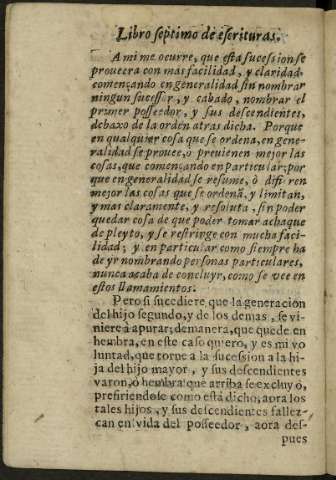 Libro septimo de escrituras.
A mi me ocurre, que esta sucession se
proueera con más facilidad, y claridad,
començando en generalidad sin nombrar
ningun sucessor, y cabado, nombrar el
primer posseedor, y sus descendientes,
debaxo de la orden atras dicha. Porque
en qualquier cosa que se ordena, en gene-
ralidad se prouee, ò preuienen mejor las
cosas, que començando en particular; por
que en generalidad se resume, ò difieren
mejor las cosas que se ordenã, y limitan,
y mas claramente, y resoluta, sin poder
quedar cosa de que poder tomar achaque
de pleyto, y se restringe con mucha faci-
lidad; y en particular como siempre ha
de yr nombrando personas particulares,
nunca acaba de concluyr, como se vee en
estos llamamientos.
Pero si sucediere, que la generacion
del hijo segundo, y de los demas, se vi-
niere à apurar; demanera, que quede en
hembra, en este caso quiero, y es mi vo
luntad, que torne a la sucession a la hi-
ja del hijo mayor, y sus descendientes
varon, ò hembra que arriba se excluyò,
prefiriendose como està dicho, aora los
tales hijos, y sus descendientes fallez-
can en vida del posseedor, aora des-
pues